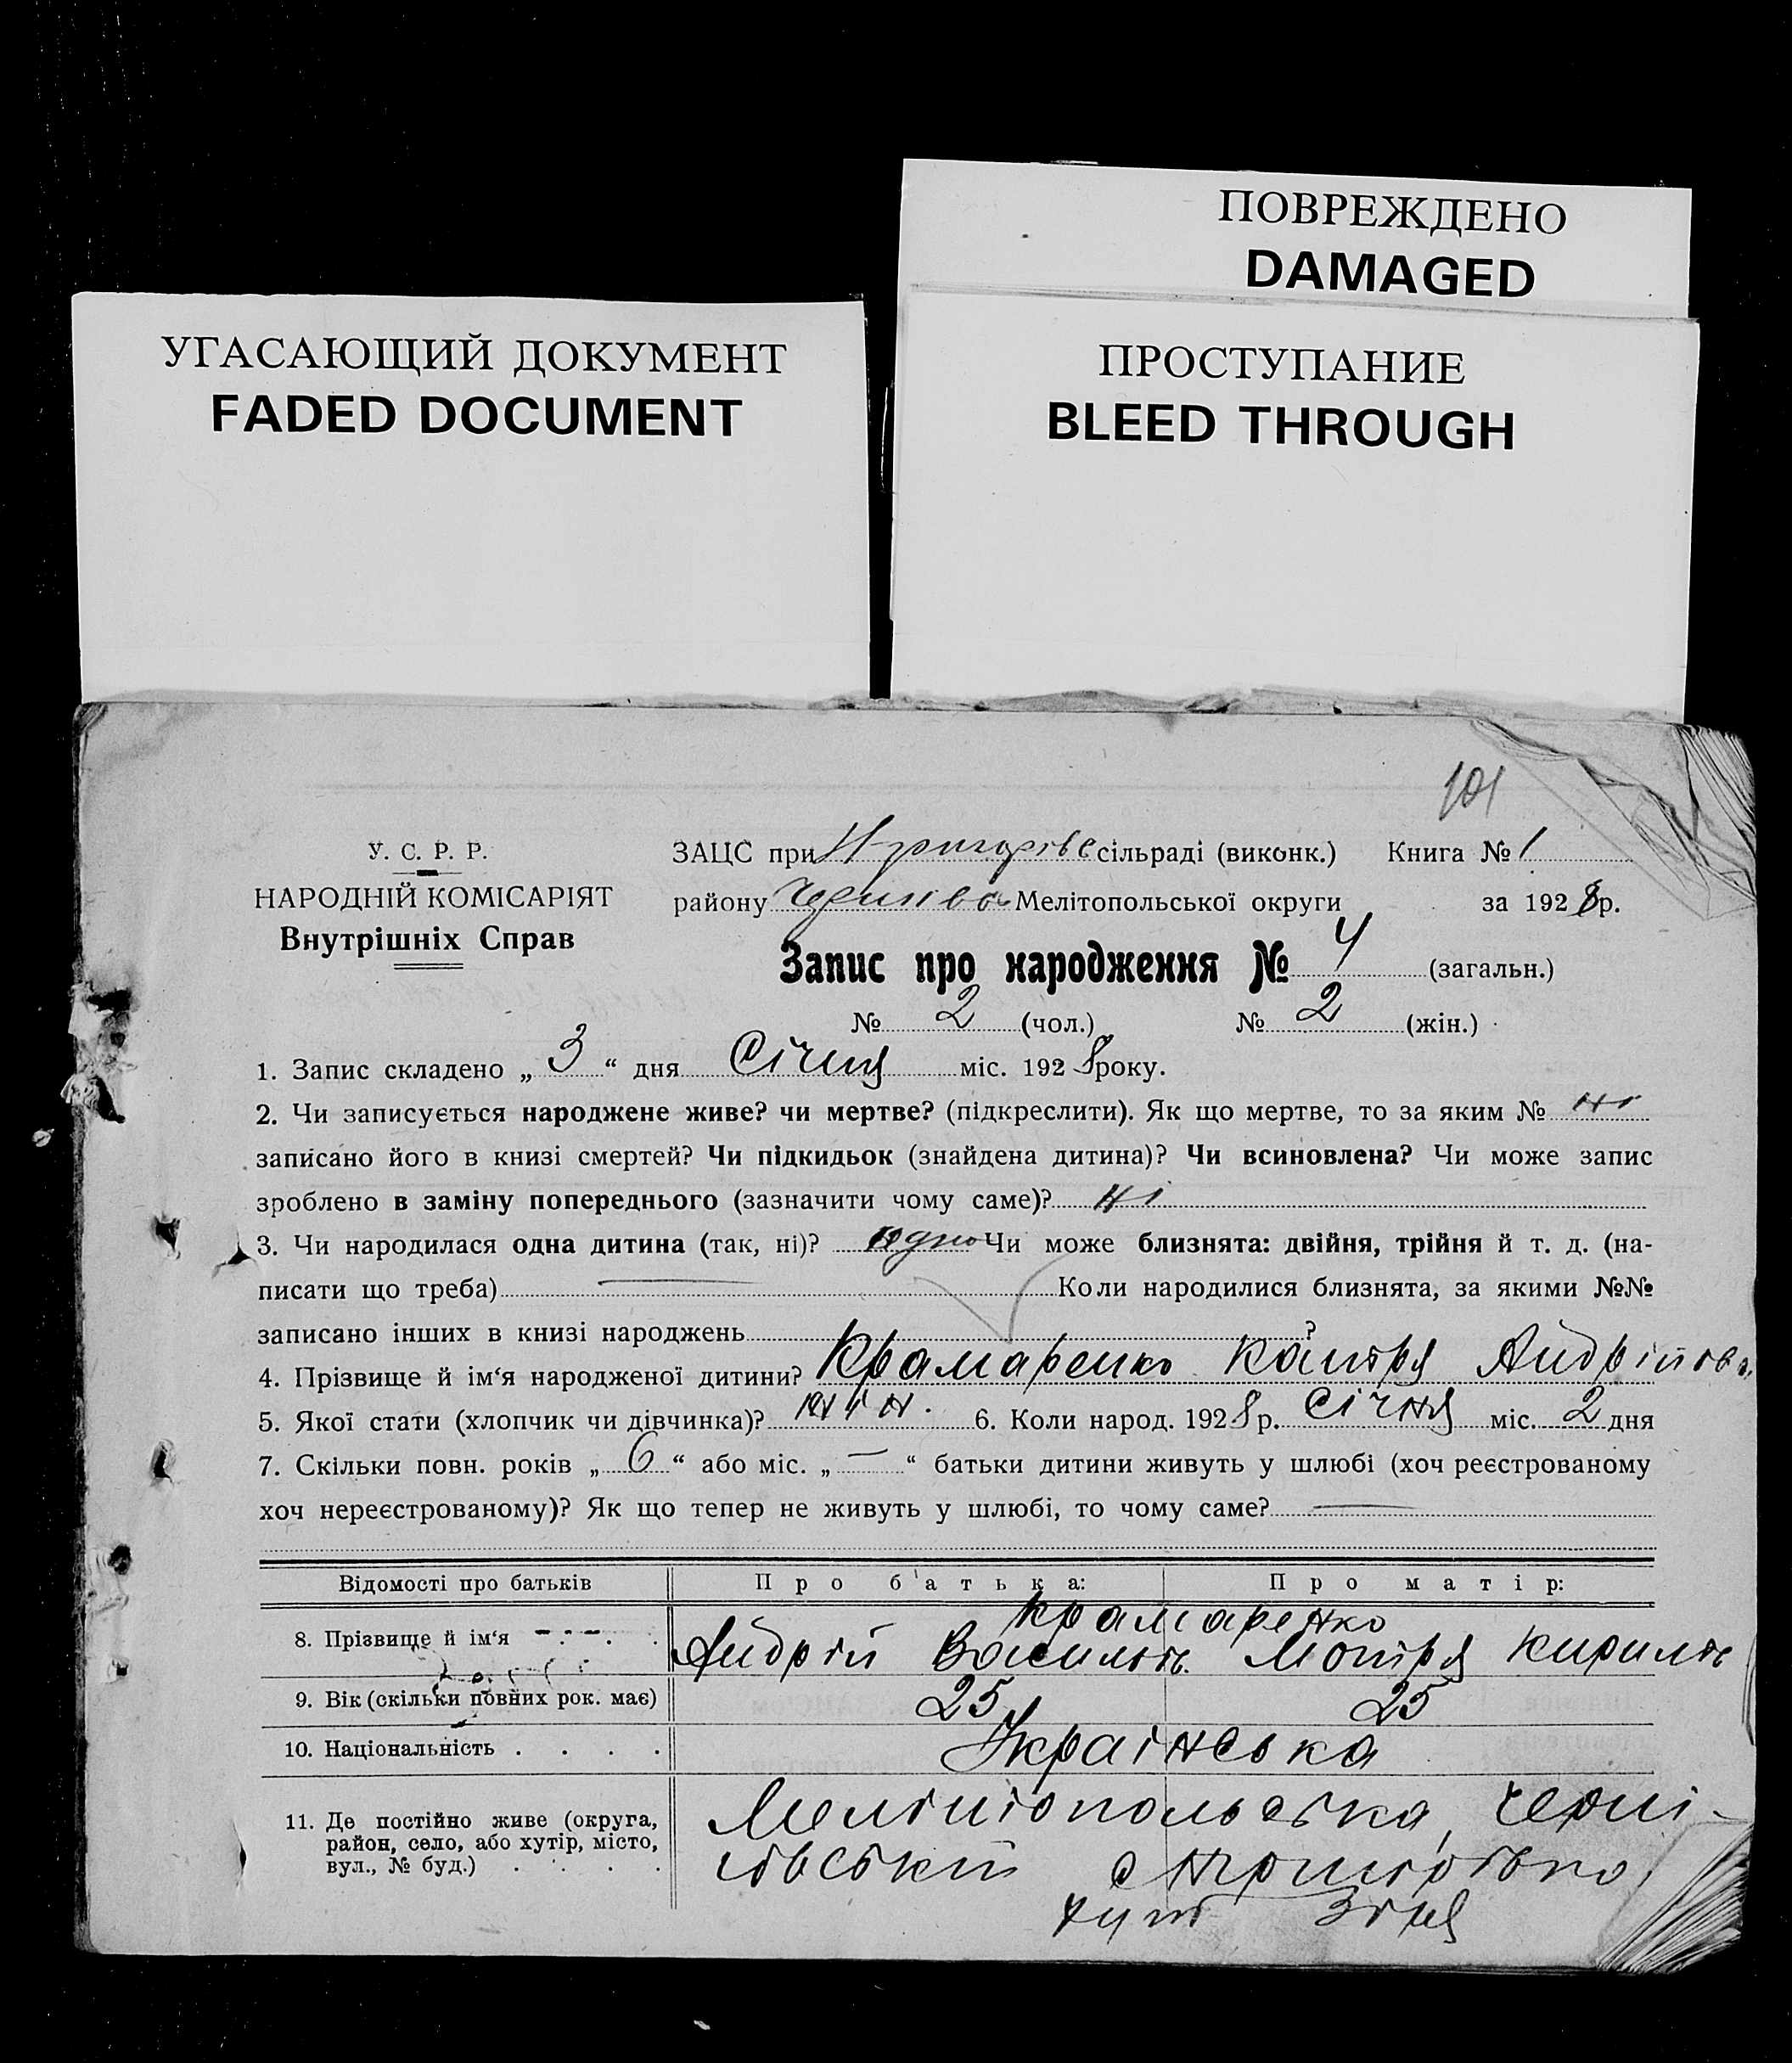 ПОВРЕЖДЕНО
DAMAGED
УГАСАЮЩИЙ ДОКУМЕНТ
FADED DOCUMENT
ПРОСТУПАНИЕ
BLEED THROUGH
101
У. С. Р. Р.
НАРОДНІЙ КОМІСАРІЯТ
Внутрішніх Справ
ЗАЦС при сільраді (виконк.) Книга № 1
району Мелітопольської округи за 1928р.
Запис про народження № 4 (загальн.)
№ 2 (чол.) № 2 (жін.)
1. Запис складено „ 3 “ дня Січня міс. 1928року.
2. Чи записується народжене живе? чи мертве? (підкреслити). Як що мертве, то за яким № ні
записано його в книзі смертей? Чи підкидьок (знайдена дитина)? Чи всиновлена? Чи може запис
зроблено в заміну попереднього (зазначити чому саме)? ні
3. Чи народилася одна дитина (так, ні)? одно Чи може близнята: двійня, трійня й т. д. (на-
писати що треба) — Коли народилися близнята, за якими №№
записано інших в книзі народжень ?
4. Прізвище й ім‘я народженої дитини? Крамаренко Катря Андрійовн.
5. Якої стати (хлопчик чи дівчинка)? жін. 6. Коли народ. 1928р. Січня міс. 2 дня
7. Скільки повн. років „ 6 “ або міс. „ — “ батьки дитини живуть у шлюбі (хоч реєстрованому
хоч нереєстрованому)? Як що тепер не живуть у шлюбі, то чому саме? —
Відомості про батьків Про батька: Про матір:
Крамаренко
8. Прізвище й ім‘я Андрій Василь. Мотря Кирилів
9. Вік (скільки повних рок. має) 25 25
10. Національність . . . . Українська
11. Де постійно живе (округа, район, село, або хутір, місто, вул., № буд.) . . . .
Мелітопольська, Черні-
гівський с
хут Зоря